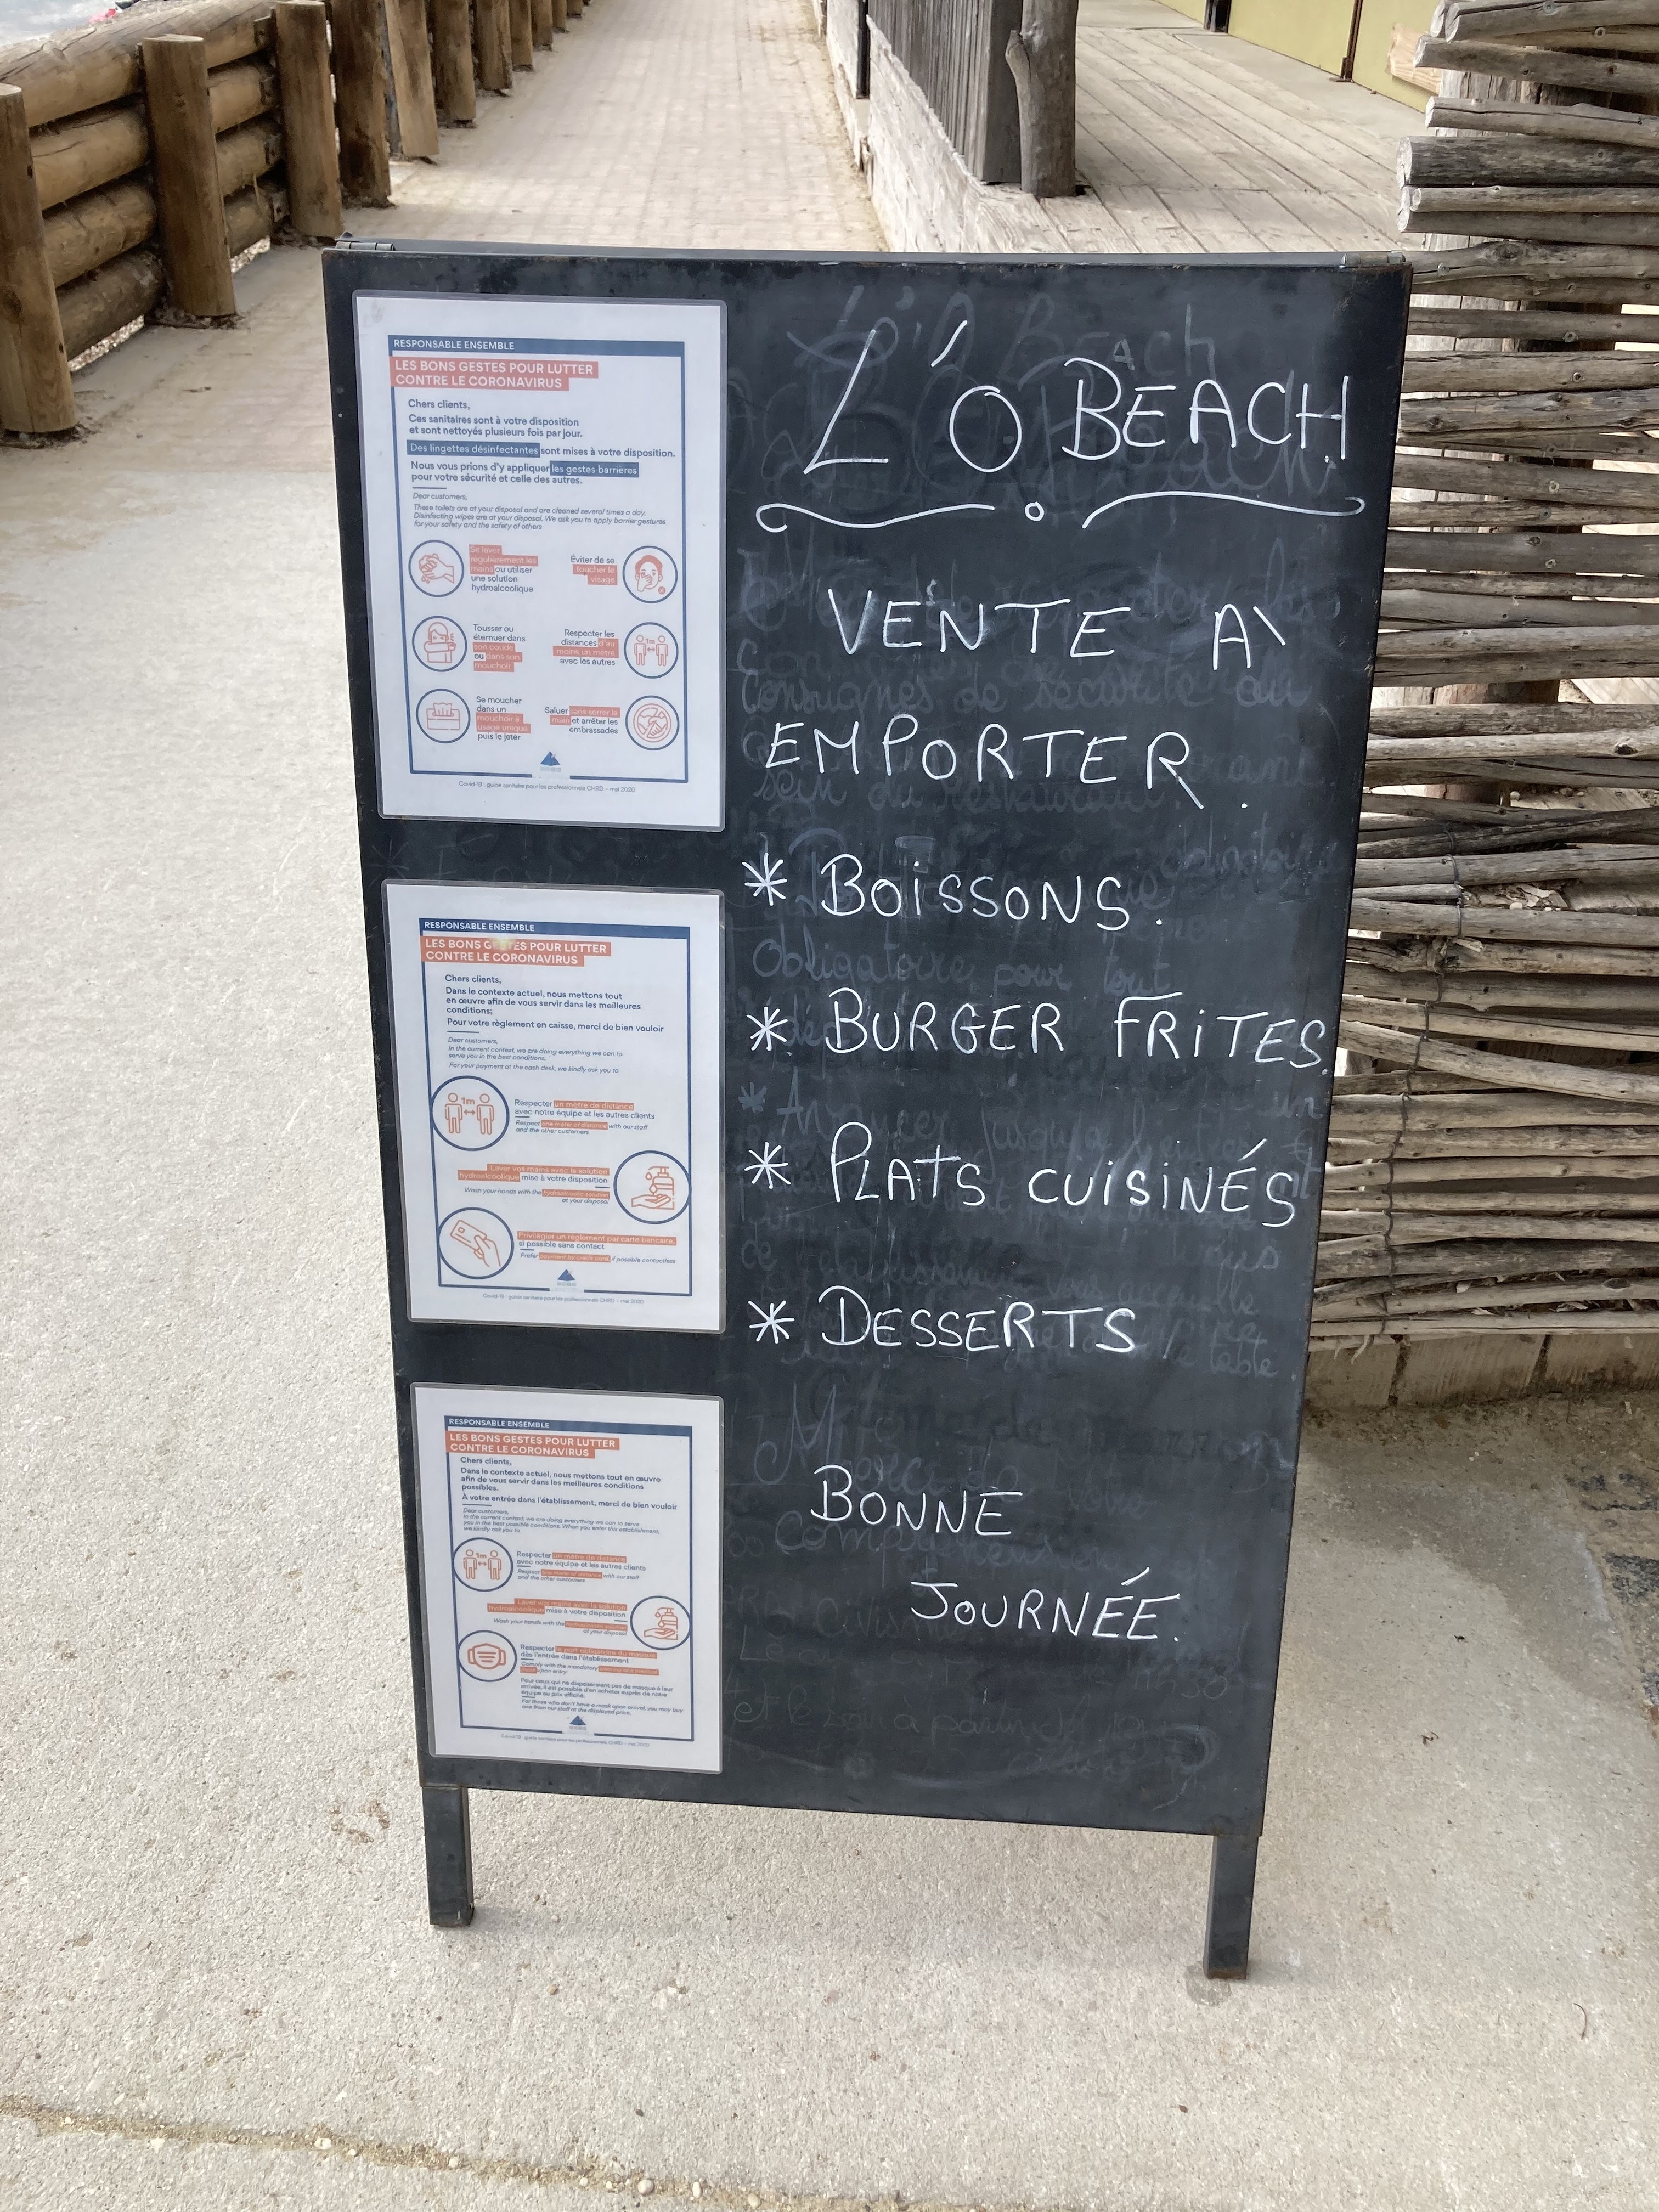 RESPONSABLE ENSEMBLE
LES BONS GESTES POUR LUTTER
CONTRE LE CORONAVIRUS
Chers clients,
Ces sanitaires sont à votre disposition
et sont nettoyés plusieurs fois par jour.
Des lingettes désinfectantes sont mises à votre disposition.
Nous vous prions d'y appliquer les gestes barrières
pour votre sécurité et celle des autres.
Dear customers,
These toilets are at your disposal and are cleaned several times a day.
Disinfecting wipes are at your disposal. We ask you to apply barrier gestures
for your safety and the safety of others
Se laver
régulièrement les
mains ou utiliser
une solution
hydroalcoolique
Éviter de se
toucher le
visage
Tousser ou
éternuer dans
son coude
ou dans son
mouchoir
Respecter les
distances d'au
moins un mètre
avec les autres
1m
Se moucher
dans un
mouchoir à
usage unique
puis le jeter
Saluer sans serrer la
main et arrêter les
embrassades
Covid-19 : guide sanitaire pour les professionnels CHRD - mai 2020
RESPONSABLE ENSEMBLE
LES BONS GESTES POUR LUTTER
CONTRE LE CORONAVIRUS
Chers clients,
Dans le contexte actuel, nous mettons tout
en œuvre afin de vous servir dans les meilleures
conditions;
Pour votre règlement en caisse, merci de bien vouloir
Dear customers,
In the current context, we are doing everything we can to
serve you in the best conditions.
For your payment at the cash desk, we kindly ask you to
1m
Respecter un mètre de distance
avec notre équipe et les autres clients
Respect one meter of distance with our staff
and the other customers
Laver vos mains avec la solution
hydroalcoolique mise à votre disposition
Wash your hands with the hydroalcoholic solution
at your disposal
Privilégier un règlement par carte bancaire,
si possible sans contact
Prefer payment by credit card, if possible contactless
Covid-19 : guide sanitaire pour les professionnels CHRD - mai 2020
RESPONSABLE ENSEMBLE
LES BONS GESTES POUR LUTTER
CONTRE LE CORONAVIRUS
Chers clients,
Dans le contexte actuel, nous mettons tout en œuvre
afin de vous servir dans les meilleures conditions
possibles.
À votre entrée dans l'établissement, merci de bien vouloir
Dear customers,
In the current context, we are doing everything we can to serve
you in the best possible conditions. When you enter this establishment,
we kindly ask you to
1m
Respecter un mètre de distance
avec notre équipe et les autres clients
Respect one meter of distance with our staff
and the other customers
Laver vos mains avec la solution
hydroalcoolique mise à votre disposition
Wash your hands with the
at your disposal
Respecter le port obligatoire du masque
dès l'entrée dans l'établissement
Comply with the mandatory
upon entry
Pour ceux qui ne disposeraient pas de masque à leur
arrivée, il est possible d'en acheter auprès de notre
équipe au prix affiché.
For those who don't have a mask upon arrival, you may buy
one from our staff at the displayed price.
Covid-19 : guide sanitaire pour les professionnels CHRD - mai 2020
L'O BEACH
VENTE A`
EMPORTER.
* BOISSONS.
* BURGER FRITES.
* PLATS CUISINÉS
* DESSERTS
BONNE
JOURNÉE.